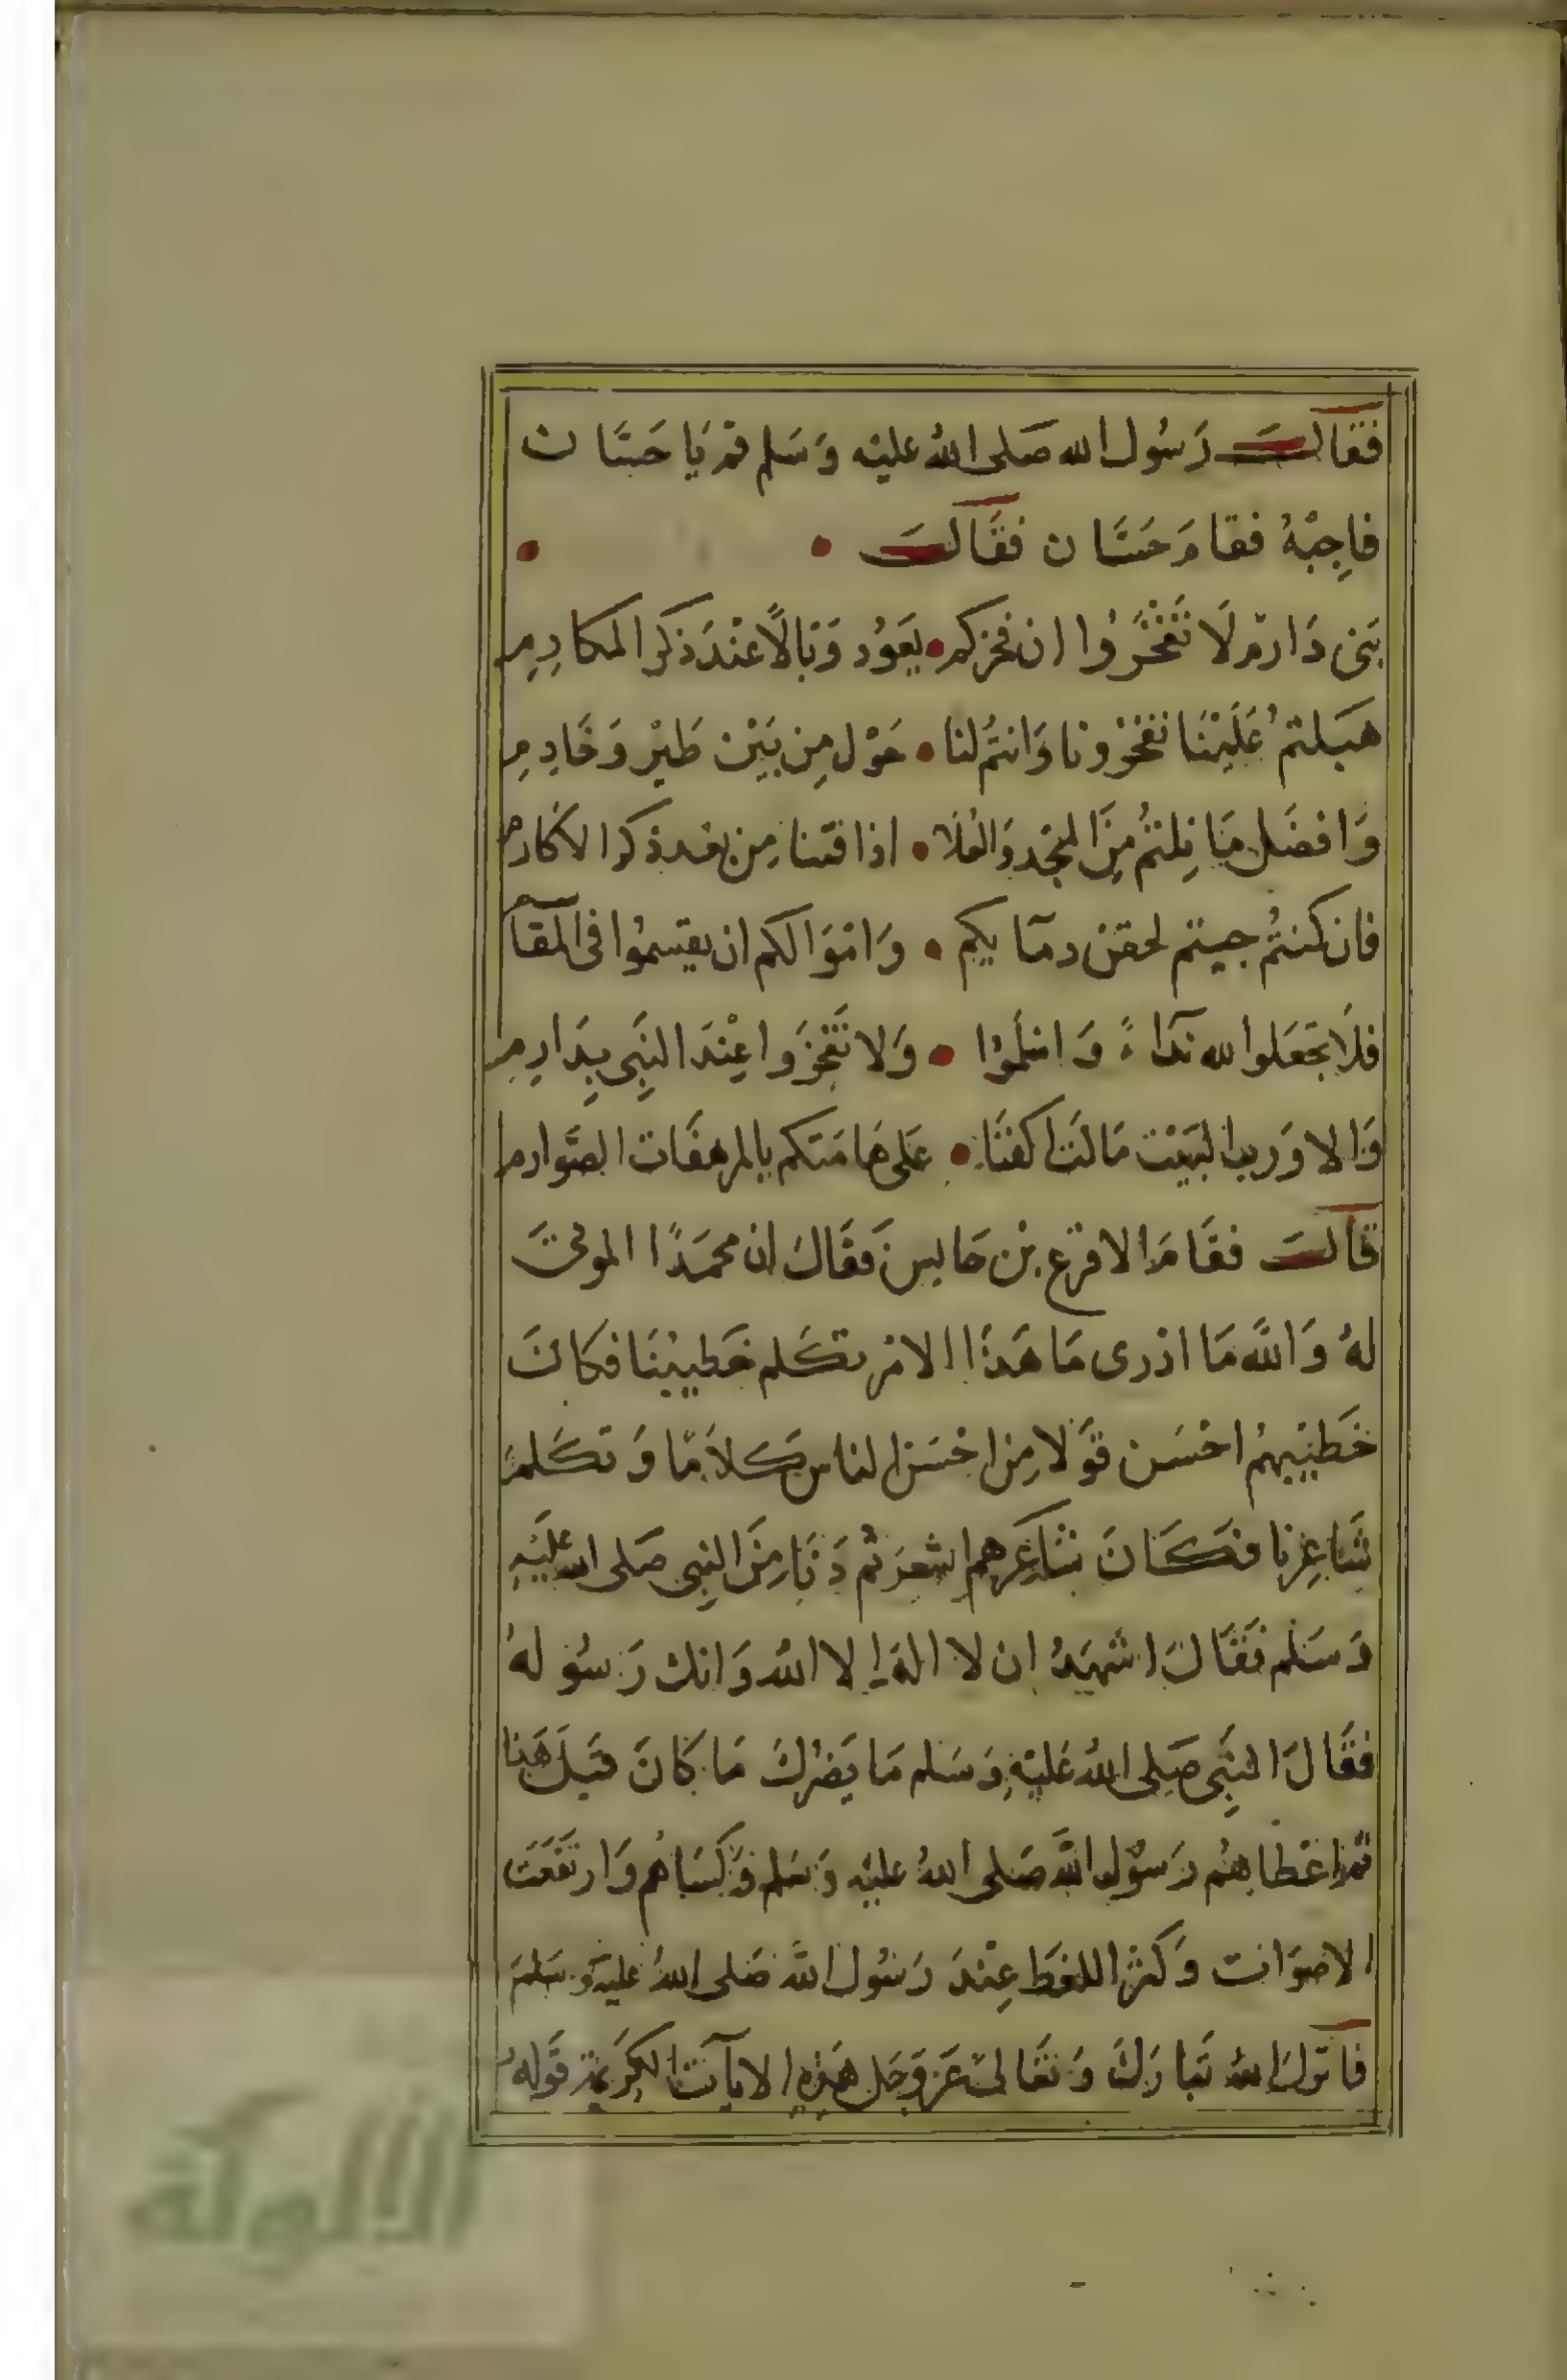 فقالــــ رَسُول الله صَلى اللهُ عليْه وَسَلم قمْ يَا حَسَّان
فاجِبْهُ فقامَ حَسَّان فقَالــــ
بَنى دَارمْ لَا تَفْخَرُوا ان فخركم • يَعوُد وَبَالًا عنْدَ ذكر المكارِمِ
هَبَلتمُ عَلَيْنَا تفخرونا وَانتُم لنا • خَوْل مِن بَيْن ظيْر وَخَادِمِ
وَافضَل مَا نِلتمُ مِنَ المجْد وَالعُلَا • اذا قتنا مِن بعْد ذكر الاكارم
فان كنتُم جيتم لحقن دمآيكم • وَامْوَالكم ان يقسِموُا فى المقآ
فلَا تجعَلوا لله ندّاءً وَاسْلموُا • وَلا تَفْخَرَوا عِنْدَ النَبِى بِدَارِمِ
وَالا وَرب البَيْت مَالَت اكفنَا • عَلى هَامَتكم بالمرهفَات الصَّوارم
قالــــ فقَامَ الاقرَع بْن حَابس فَقَالَ ان محمَدًا الموتىَ
لهُ وَاللهَ مَا ادْرى مَا هَذَا الامْر تكَلم خَطيبْنَا فكانَ
خَطيْبهمُ احْسَن قَوْلا مِن احْسَن الناس كَلَامًا وَتكَلمَ
شَاعِرنا فكَانَ شَاعِرهم اشعَر ثم دَنَا مِنَ النبِى صَلى الله عليْهِ
وَسَلم فَقَالَ اشهَدُ ان لا الهَ اِلا اللهُ وَانك رَسُوُلهُ
فقَالَ النَبِى صَلى اللهُ عَليْهِ وَسَلم مَا يَضرُكَ مَا كَانَ قبَلَ هَذا
ثمَ اعْطاهمُ رَسوُل اللهَ صَلى اللهُ عليْه وَسَلم وَكسَاهُم وَارتفَعَت
الاصوَات وَكثر اللغَط عِنْدَ رَسُول اللهَ صَلى اللهُ عليْه وَسَلمَ
فانزلَ اللهُ تَبَارَكَ وَتَعَالىَ عَز وَجَل هَذِهِ الايآت الكرَيمة قَوْلهُ
الألوكة